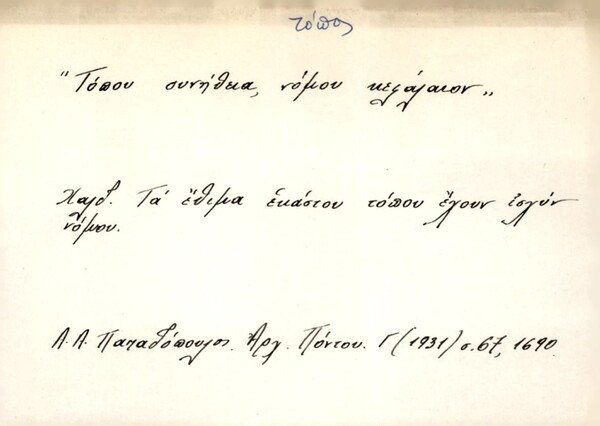 τόπος
"Τόπου συνήθεια, νόμου κεφάλαιον„
Χαλδ. Τά ἔθιμα ἑκάστου τόπου ἔχουν ἰσχύν
νόμου.
Α.Α. Παπαδόπουλος. Ἀρχ. Πόντου. Γ (1931) σ.67, 1690.